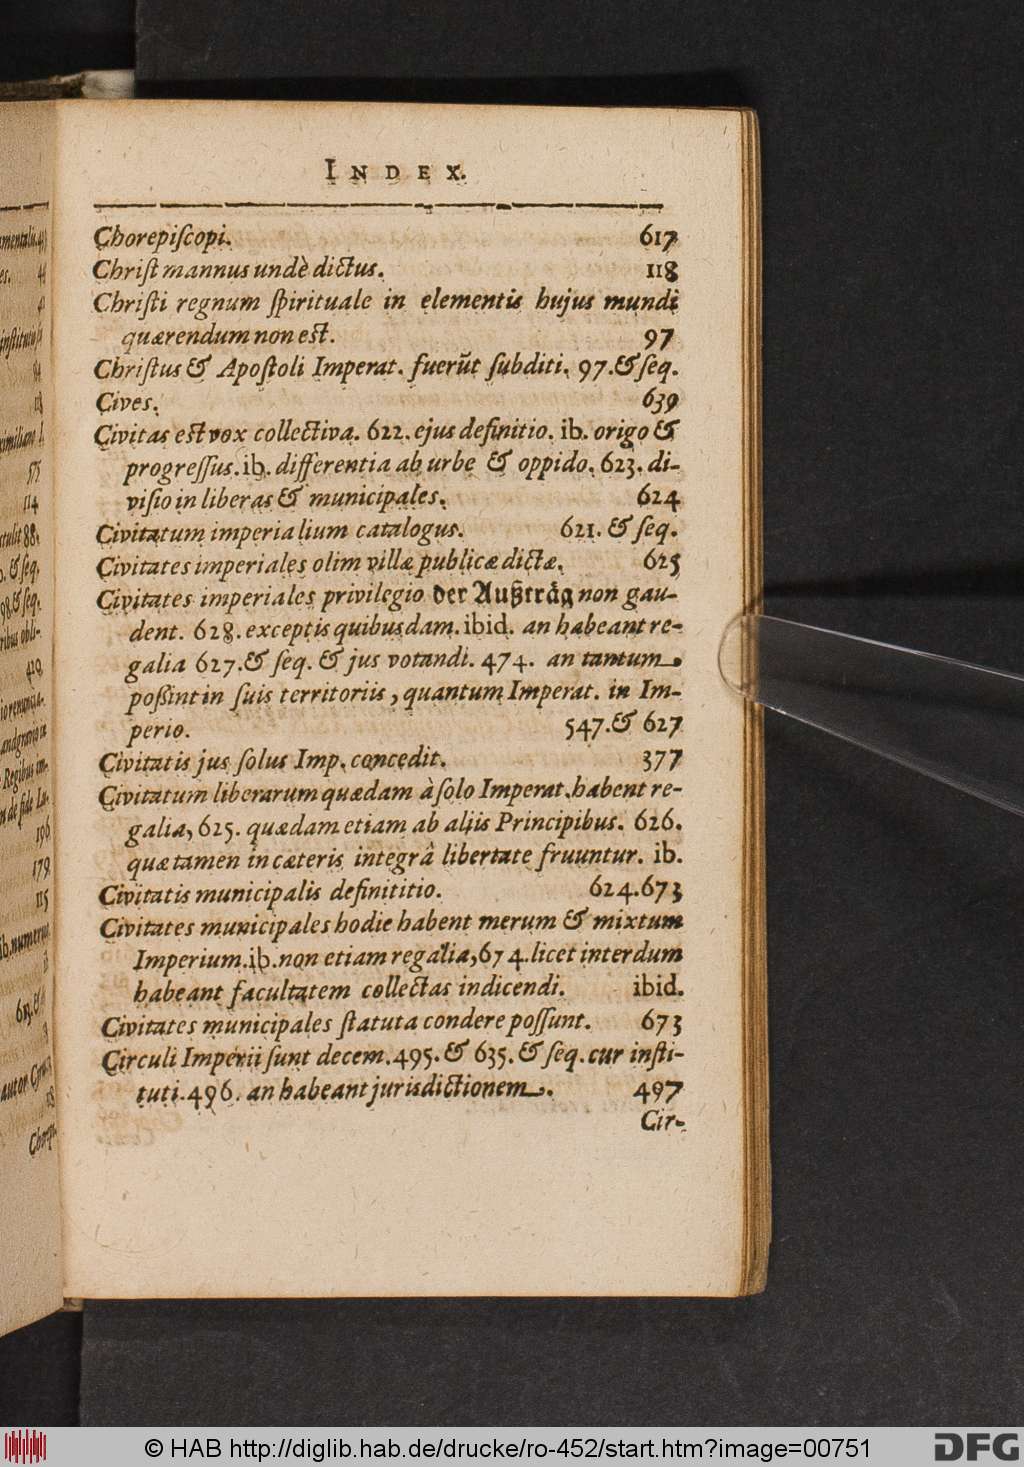 INDEX.
Chorepiſcopi. 617
Chriſtmannus undè dictus. 118
Chriſti regnum ſpirituale in elementis hujus mundi
quærendum non est. 97
Chriſtus & Apoſtoli Imperat. fuerũt ſubditi. 97. & ſeq.
Cives. 639
Civitas est vox collectiva. 622. ejus definitio. ib. origo &
progreſſus. ib. differentia ab urbe & oppido. 623. di-
viſio in liberas & municipales. 624
Civitatum imperialium catalogus. 621. & ſeq.
Civitates imperiales olim villæ publicæ dictæ. 625
Civitates imperiales privilegio der Außträg non gau-
dent. 628. exceptis quibusdam. ibid. an habeant re-
galia 627. & ſeq. & jus votandi. 474. an tantum
poßint in ſuis territoriis, quantum Imperat. in Im-
perio. 547. & 627
Civitatis jus ſolus Imp. concedit. 377
Civitatum liberarum quædam à ſolo Imperat. habent re-
galia, 625. quædam etiam ab aliis Principibus. 626.
quæ tamen in cæteris integrâ libertate fruuntur. ib.
Civitatis municipalis definititio. 624. 673
Civitates municipales hodie habent merum & mixtum
Imperium. ib. non etiam regalia, 674. licet interdum
habeant facultatem collectas indicendi. ibid.
Civitates municipales ſtatuta condere poſſunt. 673
Circuli Imperii ſunt decem. 495. & 635. & ſeq. cur inſti-
tuti. 496. an habeant jurisdictionem. 497
Cir-
© HAB http://diglib.hab.de/drucke/ro-452/start.htm?image=00751
DFG